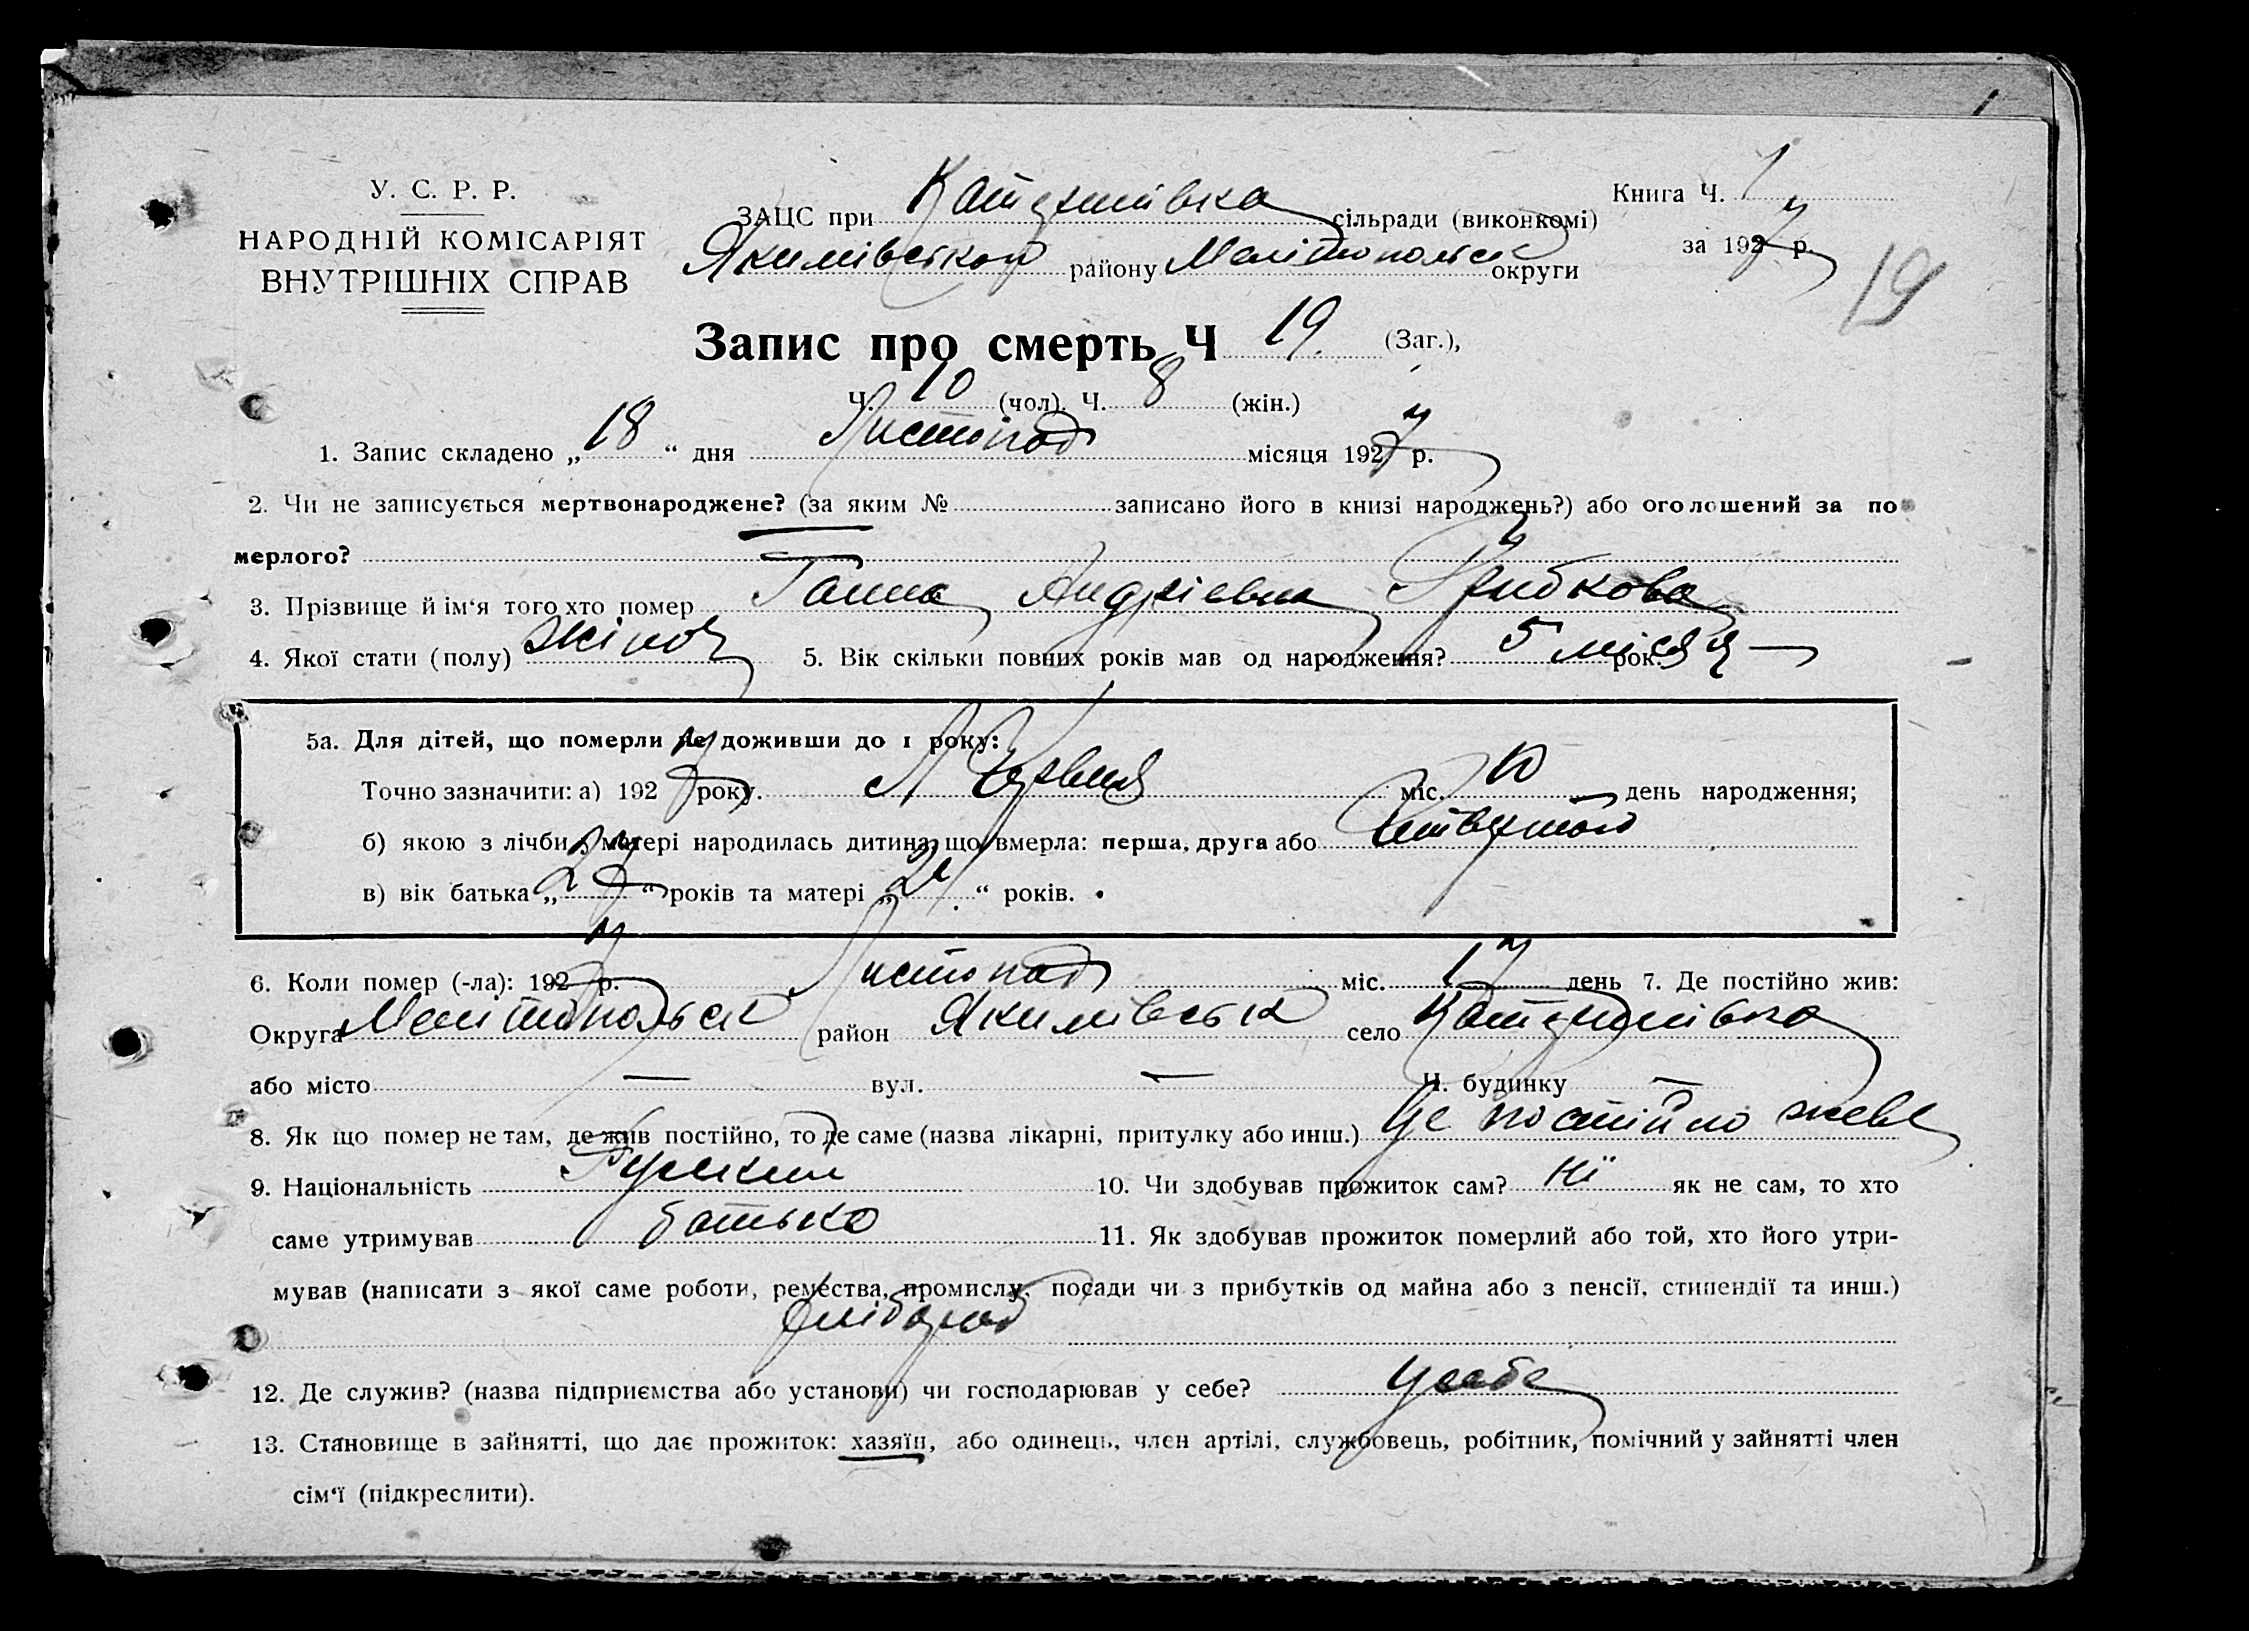 У. С. Р. Р.
НАРОДНІЙ КОМІСАРІЯТ
ВНУТРІШНІХ СПРАВ
ЗАЦС при сільради (виконкомі)
Якимівської району Мелітопольськ округи
Книга Ч. 1
за 1927 р.
19
Запис про смерть Ч 19 (Заг.),
Ч. 10 (чол). Ч. 8 (жін.)
1. Запис складено „ 18 “ дня Листопад місяця 1927 р.
2. Чи не записується мертвонароджене? (за яким № записано його в книзі народжень?) або оголошений за по
мерлого? —
3. Прізвище й ім‘я того хто помер Ганна Андріевна Грибкова
4. Якої стати (полу) жіноч 5. Вік скільки повних років мав од народження? 5 місяц рок. —
5а. Для дітей, що померли не доживши до 1 року:
Точно зазначити: а) 1927 року. Червня міс. 10 день народження;
б) якою з лічби у матері народилась дитина, що вмерла: перша, друга або
в) вік батька „ 27 “ років та матері „ “ років.
6. Коли помер (-ла): 1927 р. Листопад міс. 17 день 7. Де постійно жив:
Округа Мелітопольськ район Якимівськ село
або місто — вул. — Ч. будинку —
8. Як що помер не там, де жив постійно, то де саме (назва лікарні, притулку або инш.) де постійно жеве
9. Національність 10. Чи здобував прожиток сам? ні як не сам, то хто
саме утримував батько 11. Як здобував прожиток померлий або той, хто його утри-
мував (написати з якої саме роботи, ремества, промислу, посади чи з прибутків од майна або з пенсії, стипендії та инш.)
хлібороб
12. Де служив? (назва підприємства або установи) чи господарював у себе? у себе
13. Становище в зайнятті, що дає прожиток: хазяїн, або одинець, член артілі, службовець, робітник, помічний у зайнятті член
сім‘ї (підкреслити).